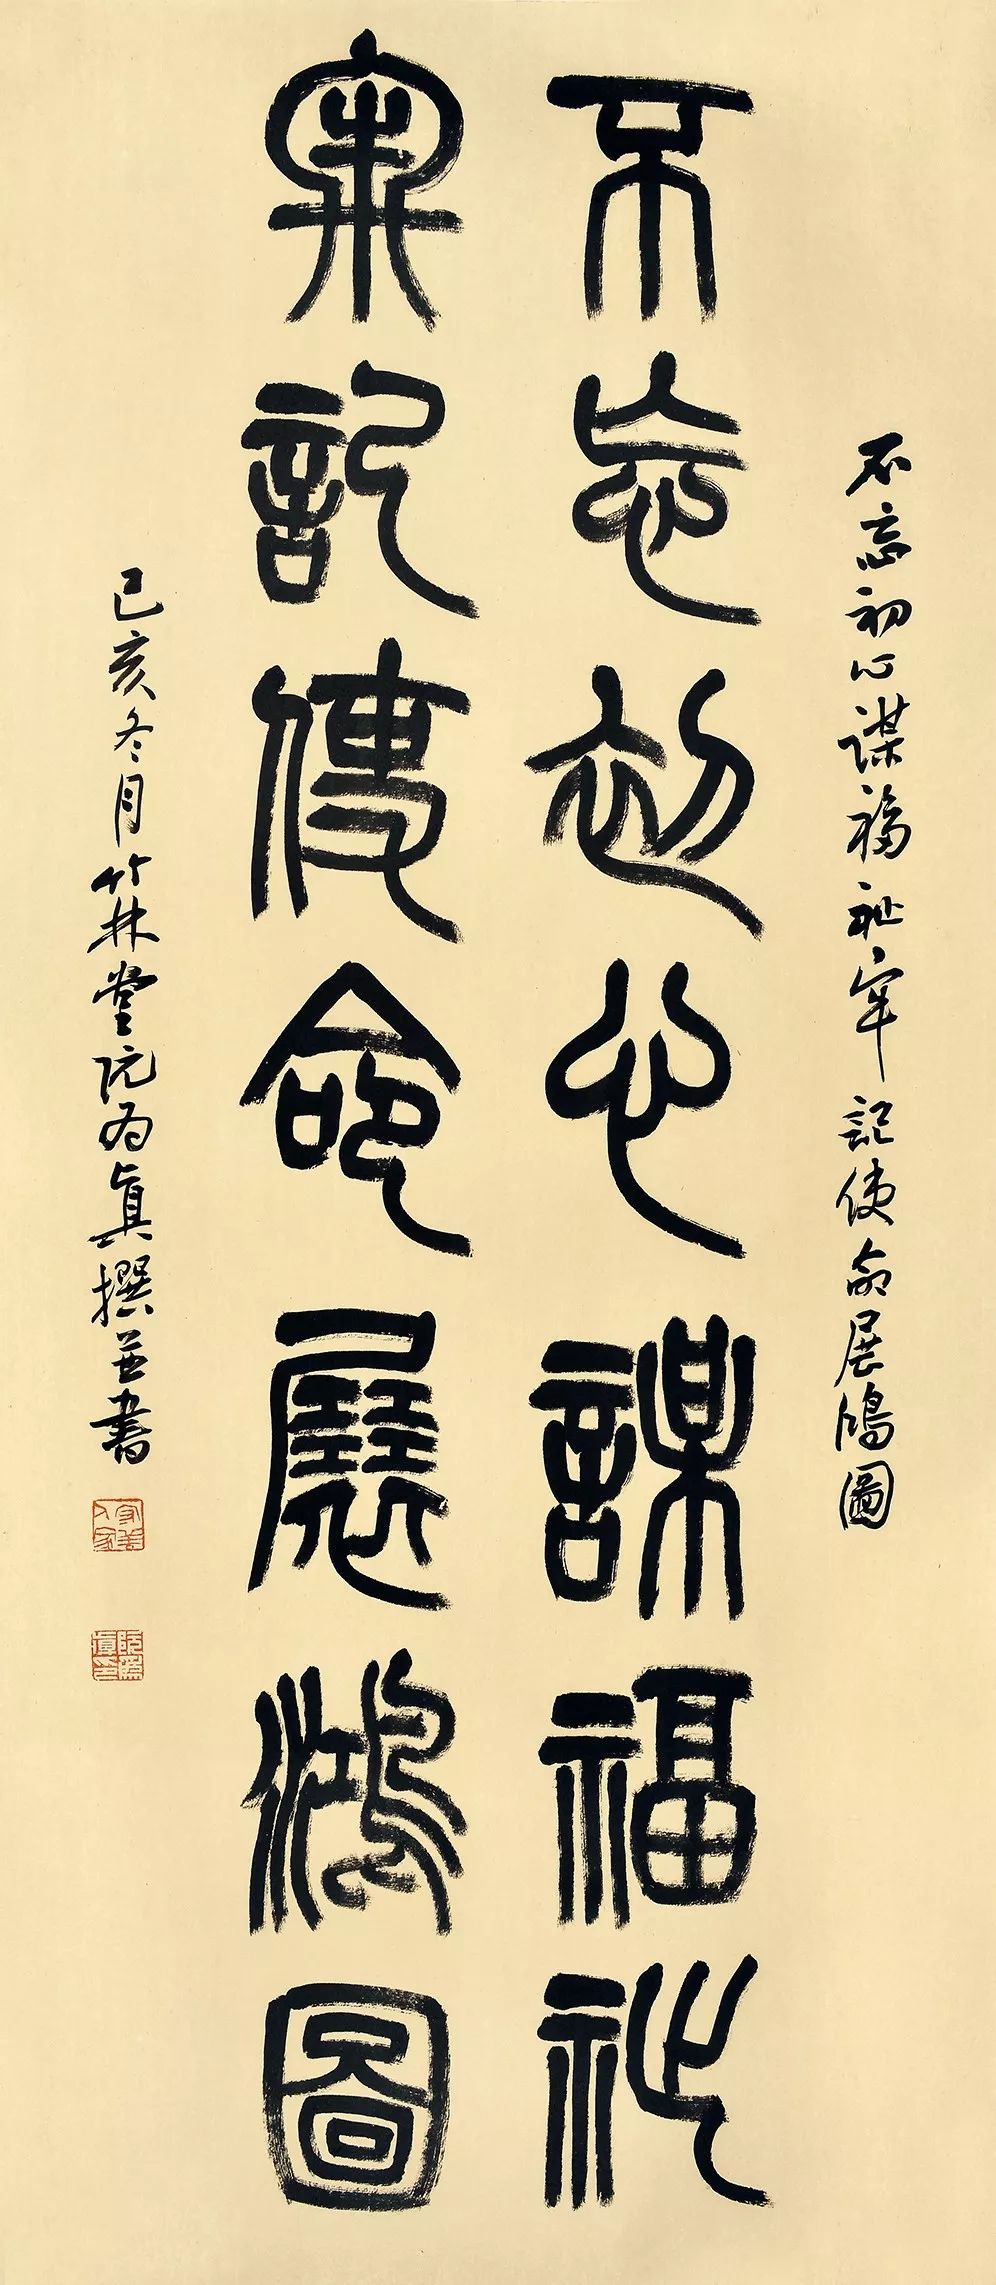 不忘初心謀福祉牢記使命展鴻圖
不忘初心謀福祉
牢記使命展鴻圖
己亥冬月竹林堂阮为真撰並書
阮為真印